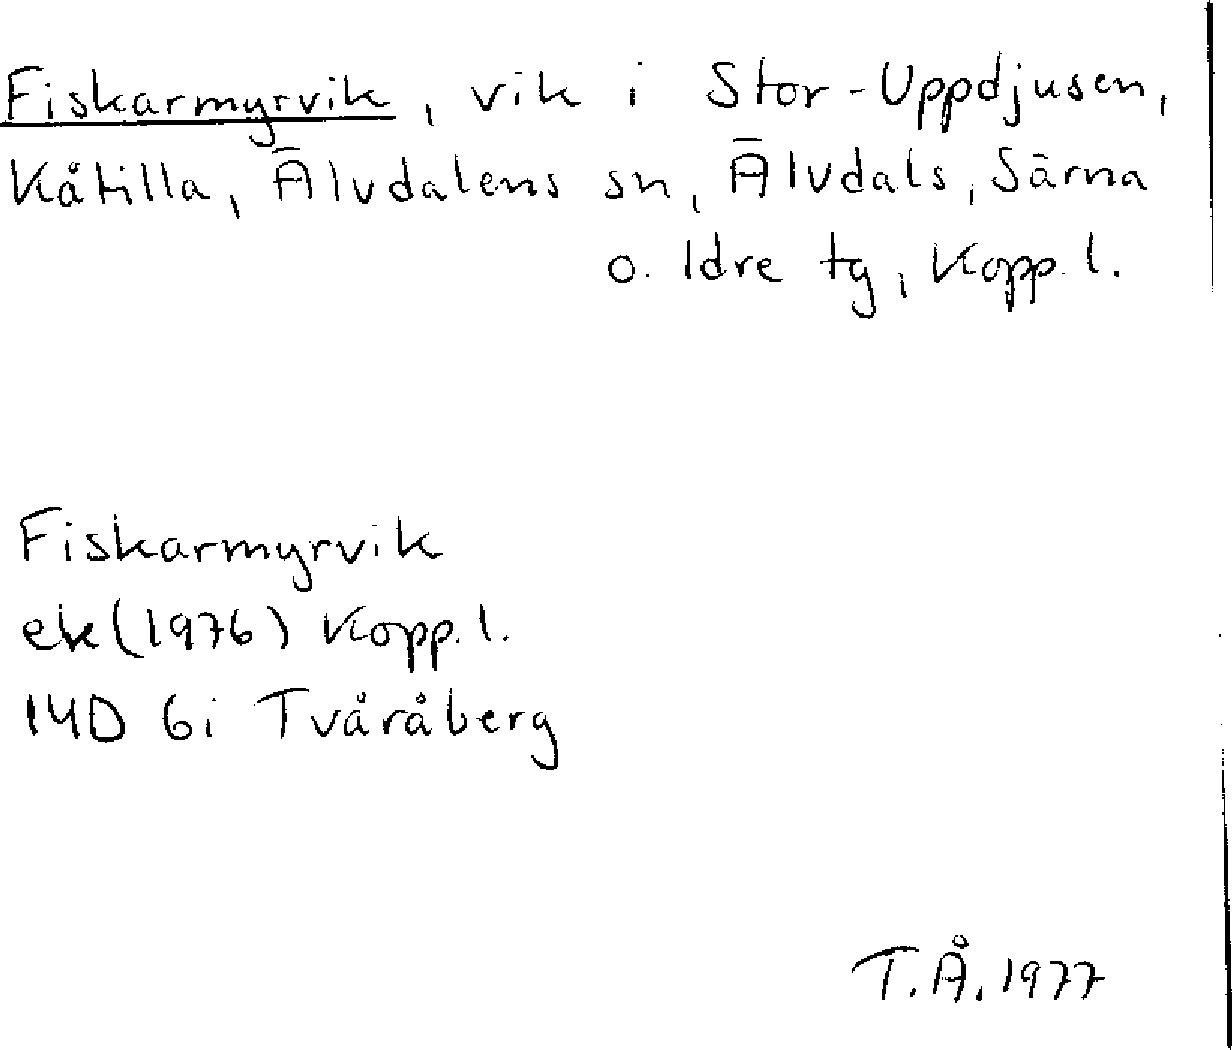 Fiskarmyrvik, vik i Stor-Uppdjusen,
Kåtilla, Älvdalens sn, Älvdals, Särna
o. Idre tg, Kopp. l.
Fiskarmyrvik
ek (1976) Kopp. l.
14D 6i Tvåråberg
T.Å. 1977